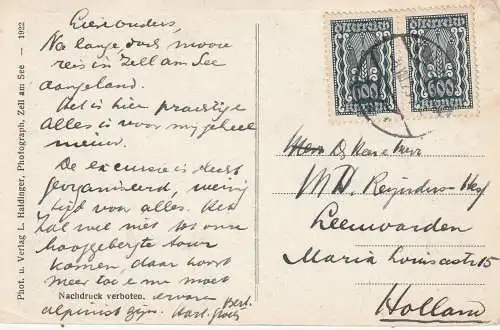 Phot. u. Verlag L. Haidinger, Photograph, Zell am See — 1922
Lieve ouders,
Na lange, doch mooie
reis in Zell am See
aangeland.
Het is hier prachtig
Alles is voor mij geheel
nieuw.
De excursie is slecht
georganiseerd, weinig
tijd voor alles. Het
zal wel niet tot onze
hooggebergte tour
komen, daar voor
meer toe men moet
ervaren
alpinist zijn. Hart. groet
Bert.
Nachdruck verboten.
600
600
Kronen
Kronen
De Heer & Mevr
M. D. Reynders
Leeuwarden
Maria Louisastr 15
Holland